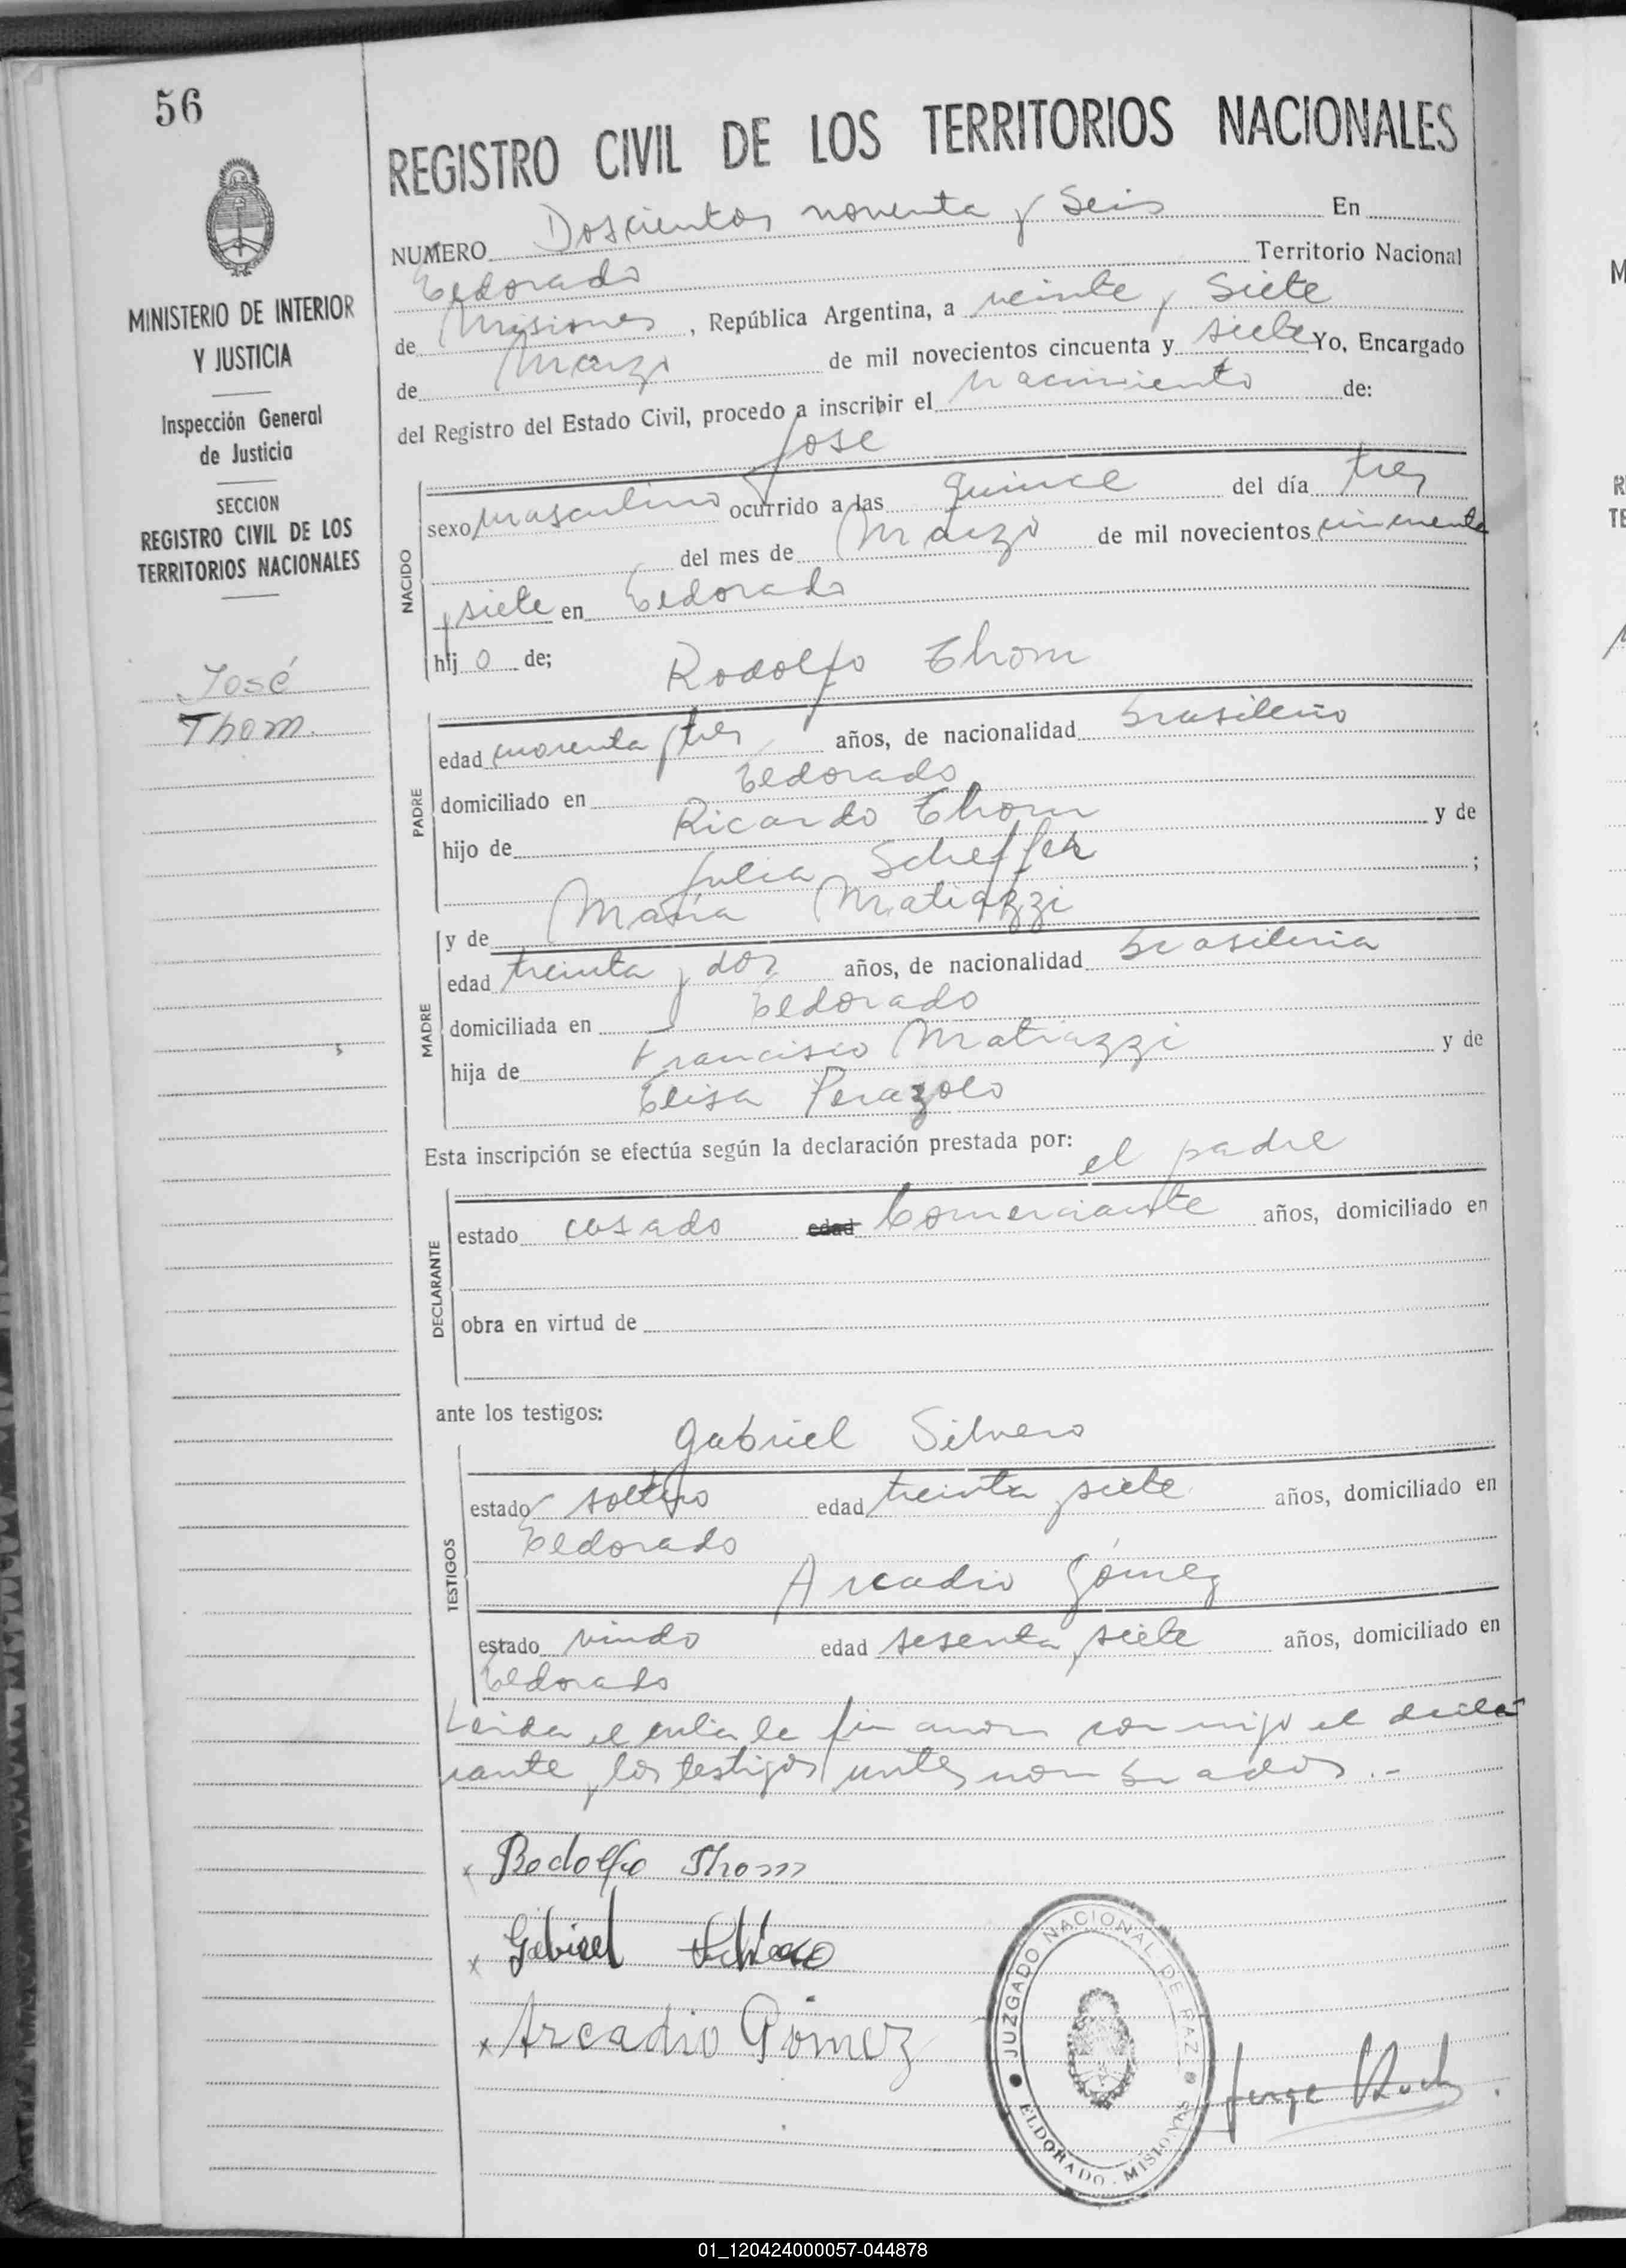 56
MINISTERIO DE INTERIOR
Y JUSTICIA
Inspección General
de Justicia
SECCION
REGISTRO CIVIL DE LOS
TERRITORIOS NACIONALES
José
Thom.
REGISTRO CIVIL DE LOS TERRITORIOS NACIONALES
NUMERO Doscientos noventa y Seis En
Eldorado Territorio Nacional
de Misiones, República Argentina, a veinte y Siete
de Marzo de mil novecientos cincuenta y siete Yo, Encargado
del Registro del Estado Civil, procedo a inscribir el nacimiento de:
Jose
NACIDO
sexo masculino ocurrido a las quince del día tres
del mes de Marzo de mil novecientos cincuenta
y siete en Eldorado
hij o de; Rodolfo Thom
PADRE
edad cuarenta y tres años, de nacionalidad brasileño
domiciliado en Eldorado
hijo de Ricardo Thom y de
Julia Scheffer ;
MADRE
y de Maria Matiazzi
edad treinta y dos años, de nacionalidad brasileria
domiciliada en Eldorado
hija de Francisco Matiazzi y de
Elisa Perazolo
Esta inscripción se efectúa según la declaración prestada por: el padre
DECLARANTE
estado casado edad Comerciante años, domiciliado en
obra en virtud de
ante los testigos: Gabriel Silvero
TESTIGOS
estado soltero edad treinta y siete años, domiciliado en
Eldorado
Arcadio Gómez
estado viudo edad sesenta y siete años, domiciliado en
Eldorado
Leida el firman conmigo el decla-
rante y los testigos antes nombrados.-
x Rodolfo Thom
x Gabriel Silvero
x Arcadio Gómez
JUZGADO NACIONAL DE PAZ
ELDORADO - MISIONES
Jorge
01_120424000057-044878